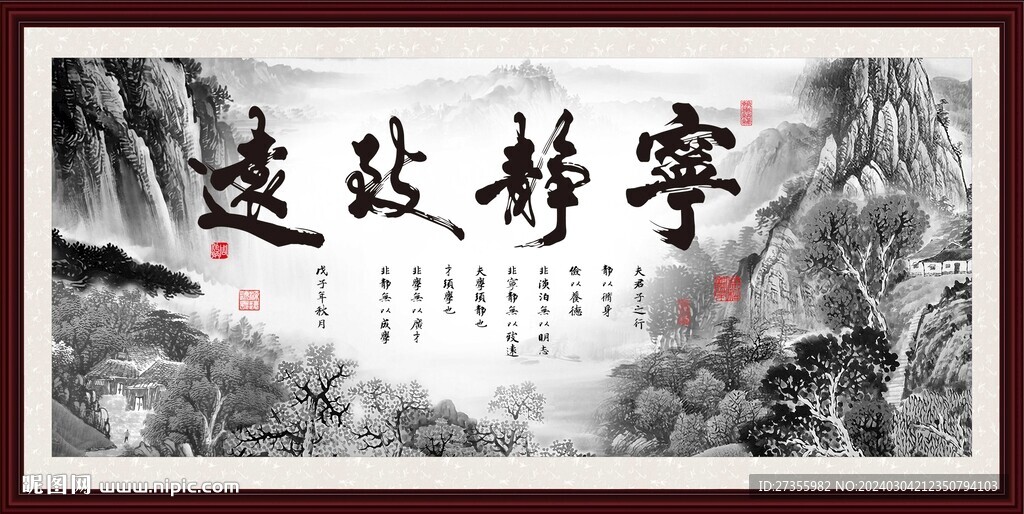 寧靜致遠
夫君子之行
靜以脩身
儉以養德
非淡泊無以明志
非寧靜無以致遠
夫學須靜也
才須學也
非學無以廣才
非靜無以成學
戊子年秋月
昵图网 www.nipic.com
ID:27355982 NO:20240304212350794103